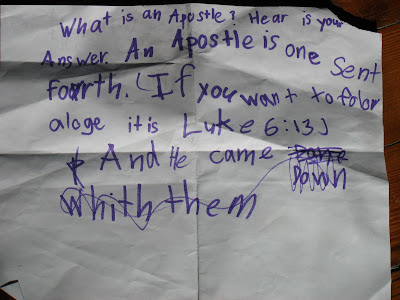 What is an Apostle? Hear is your
Answer. An Apostle is one Sent
fourth. (If you want to folow
aloge it is Luke 6:13)
And He came Down
whith them